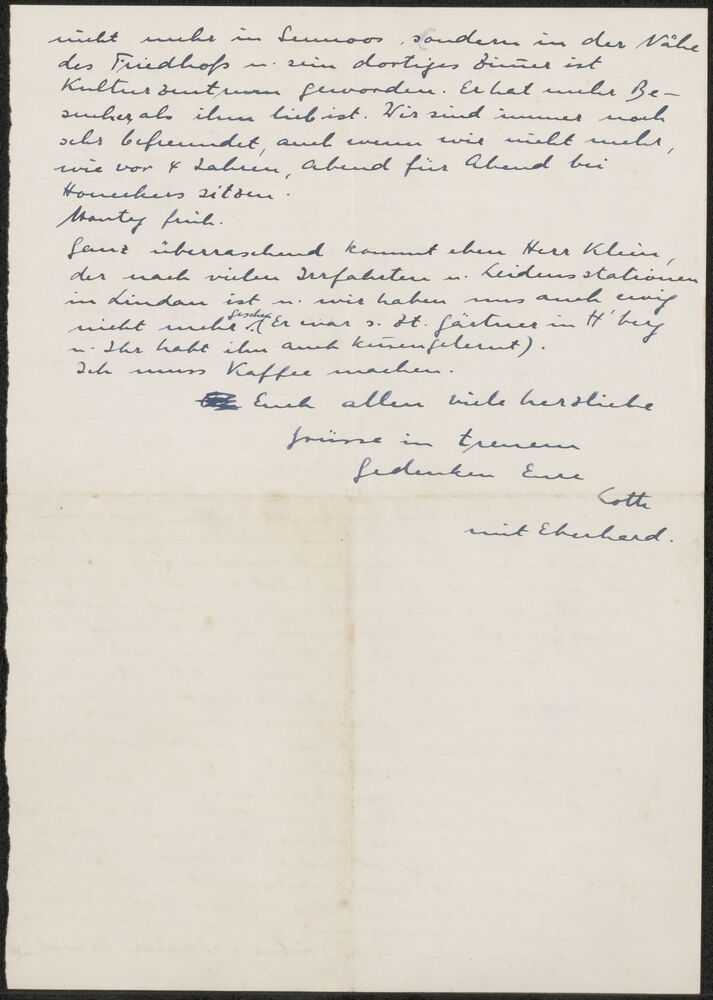 nicht mehr in Senmoos, sondern in der Nähe
des Friedhofs u. sein dortiges Zimmer ist
Kulturzentrum geworden. Er hat mehr Be-
sucher, als ihm lieb ist. Wir sind immer noch
sehr befreundet, auch wenn wir nicht mehr,
wie vor 4 Jahren, Abend für Abend bei
sitzen.
früh.
Ganz überraschend kommt eben Herr Klein,
der nach vielen Irrfahrten u. Leidensstationen
in Lindau ist u. wir haben uns auch ewig
nicht mehr gesehen (Er war s. Zt. Gärtner in H'berg
u. Ihr habt ihn auch kennengelernt).
Ich muss Kaffee machen.
Euch allen viele herzliche
Grüsse in treuem
Gedenken Eure
Lotte
mit Eberhard.